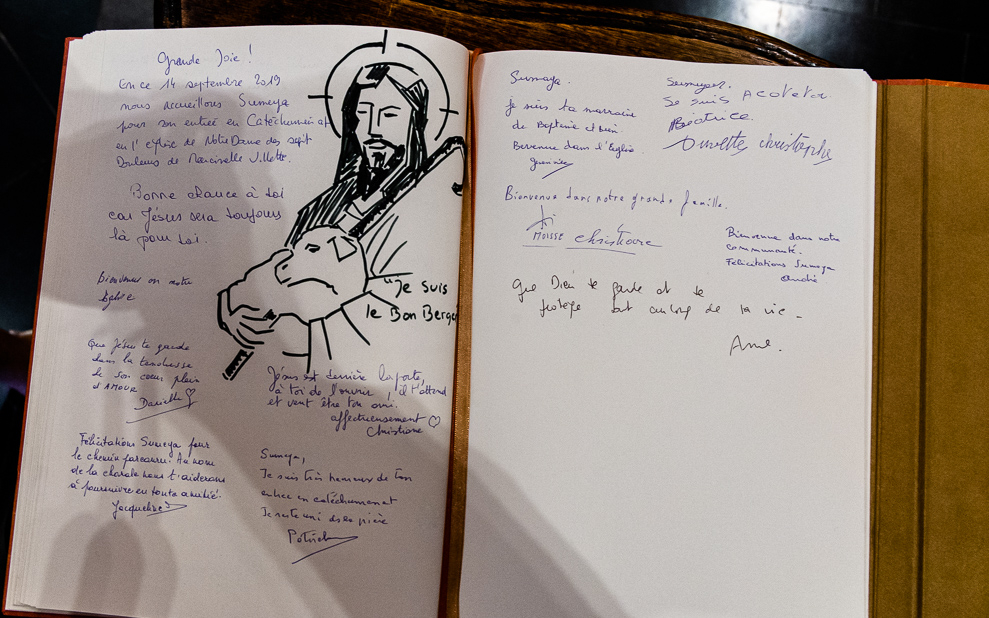 Grande Joie !
En ce 14 septembre 2019
nous accueillons Sumeya
pour son entrée en Catéchuménat
en l'église de Notre Dame des sept
Douleurs de Marcinelle Villette.
Bonne chance à toi
car Jésus sera toujours
là pour toi.
"Je suis
le Bon Berger
Bienvenue en notre
Eglise
Que Jésus te garde
dans la tendresse
de son coeur plein
d'AMOUR
Danielle
Jésus est derrière la porte,
à toi de l'ouvrir, il t'attend
et veut être ton ami.
affectueusement
Christiane
Félicitations Sumeya pour
le chemin parcouru. Au nom
de la chorale nous t'aiderons
à poursuivre en toute amitié.
Jacqueline
Sumeya,
Je suis très heureux de ton
entrée en catéchuménat
Je reste uni ds la prière
Patrick
Sumaya.
je suis ta marraine
de Baptême et
Bienvenue dans l'Eglise
Sumeya
Je suis
Béatrice.
christophe
Bienvenue dans notre grande famille.
Mousse Christiane
Bienvenue dans notre
communauté.
Félicitations Sumeya
André
Que Dieu te garde et te
protège tout au long de la vie -
Anne.